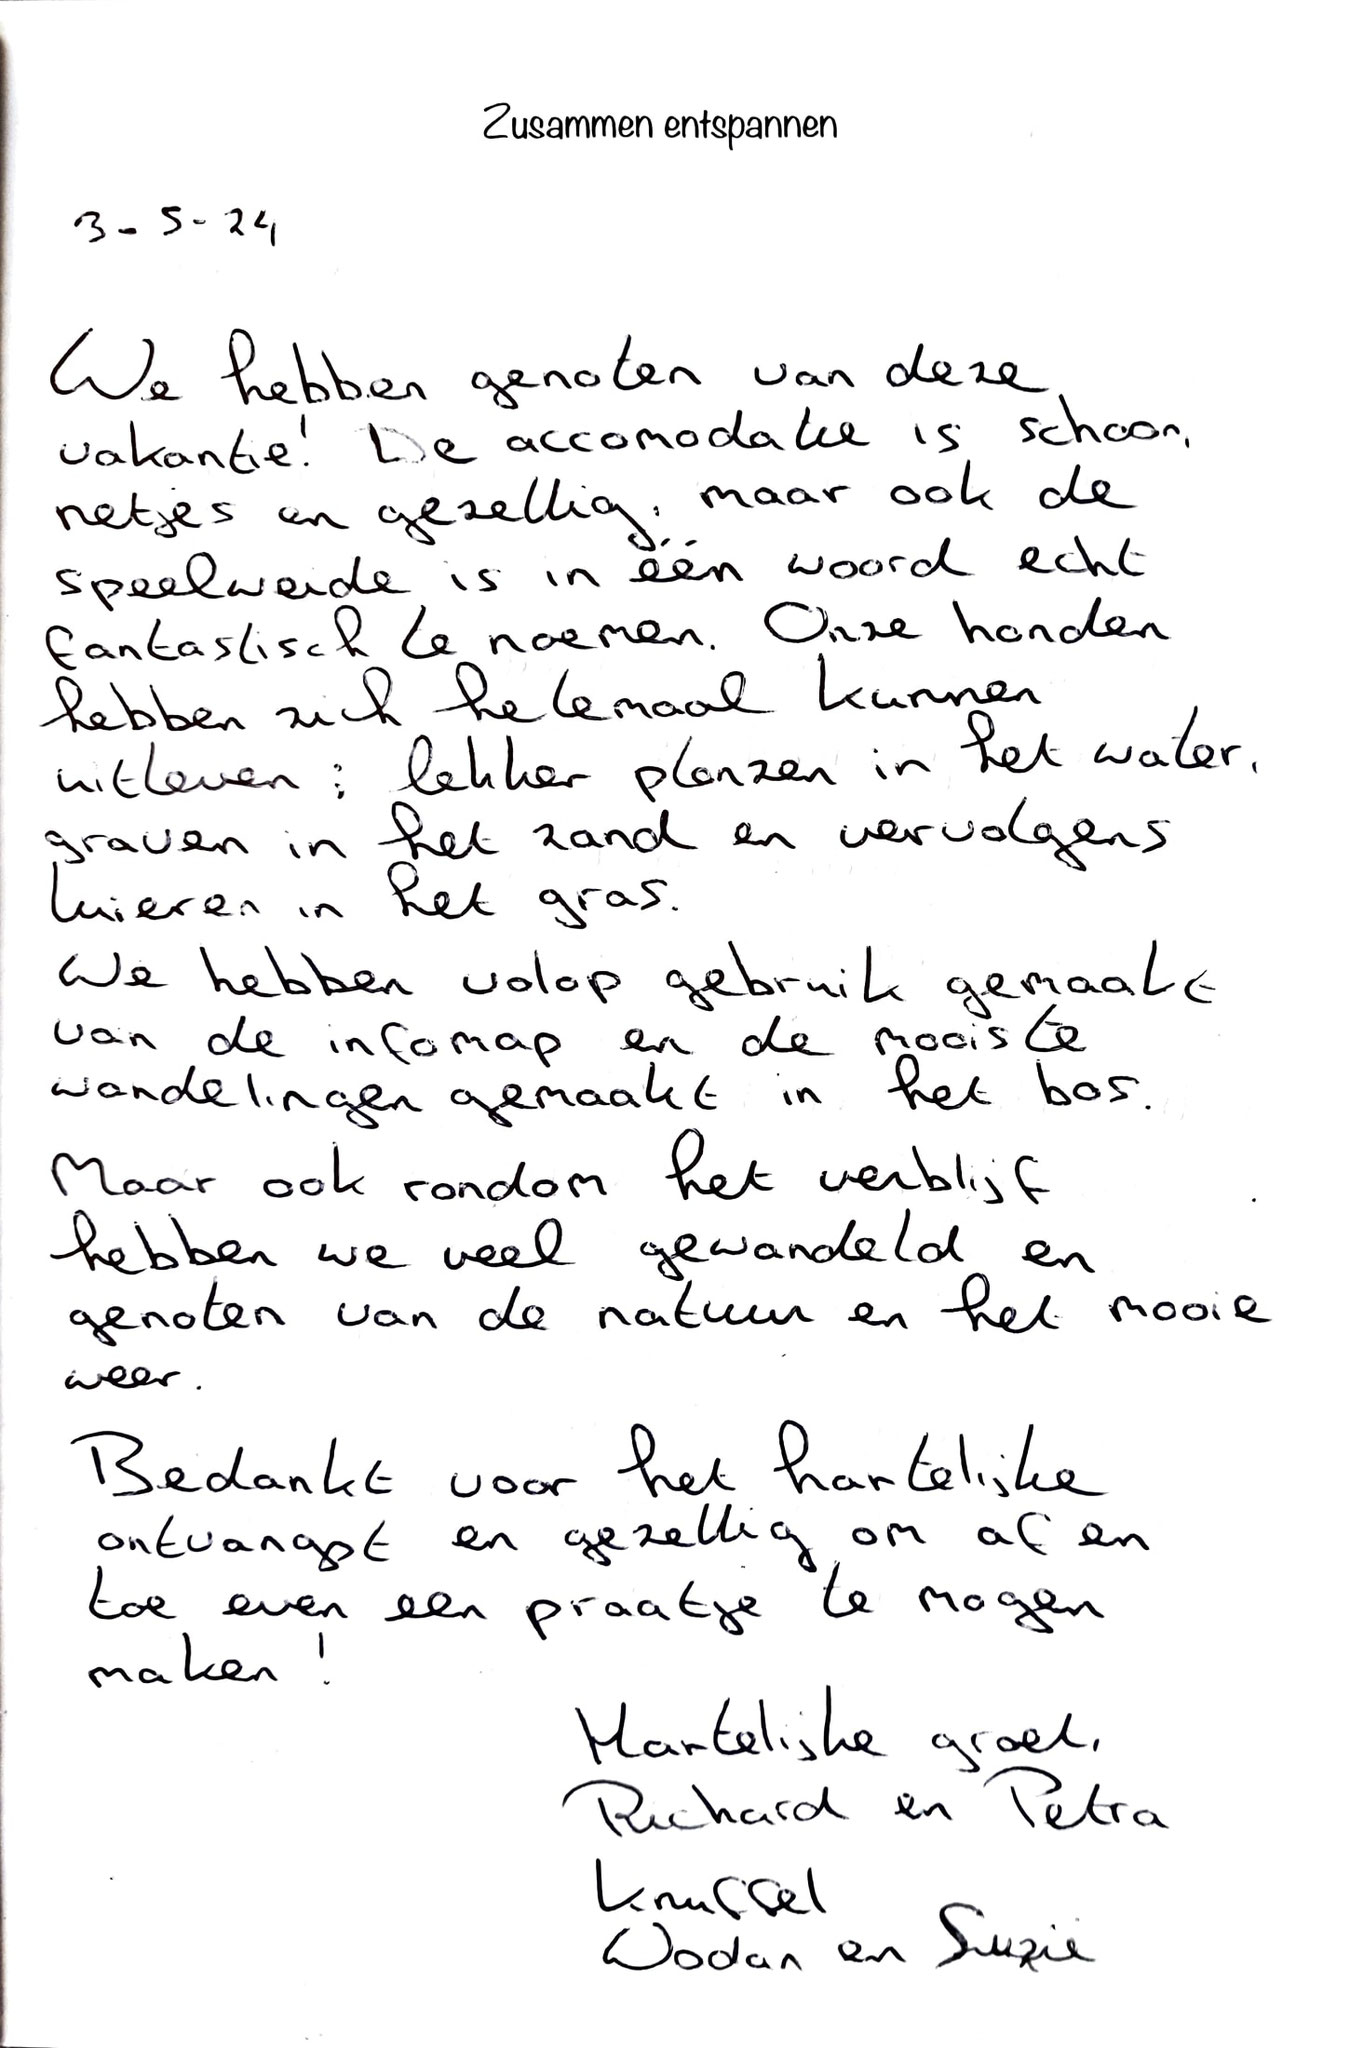 Zusammen entspannen
3-5-24
We hebben genoten van deze
vakantie! De accomodatie is schoon,
netjes en gezellig, maar ook de
speelweide is in één woord echt
fantastisch te noemen. Onze honden
hebben zich helemaal kunnen
uitleven: lekker plonzen in het water,
graven in het zand en vervolgens
luieren in het gras.
We hebben volop gebruik gemaakt
van de infomap en de mooiste
wandelingen gemaakt in het bos.
Maar ook rondom het verblijf
hebben we veel gewandeld en
genoten van de natuur en het mooie
weer.
Bedankt voor het hartelijke
ontvangst en gezellig om af en
toe even een praatje te mogen
maken!
Hartelijke groet,
Richard en Petra
Knuffel
Wodan en Suzie